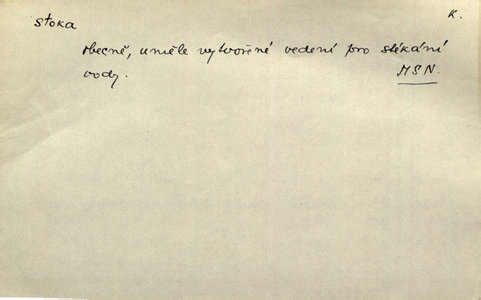 stoka K.
obecně, uměle vytvořené vedení pro stékání
vody. MSN.